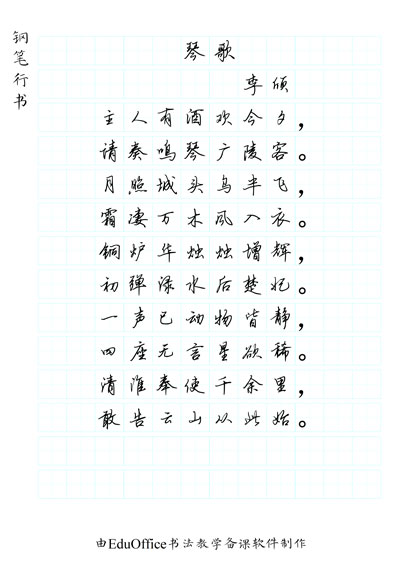 钢笔行书
琴歌
李颀
主人有酒欢今夕，
请奏鸣琴广陵客。
月照城头乌半飞，
霜凄万木风入衣。
铜炉华烛烛增辉，
初弹渌水后楚妃。
一声已动物皆静，
四座无言星欲稀。
清淮奉使千余里，
敢告云山从此始。
由EduOffice书法教学备课软件制作